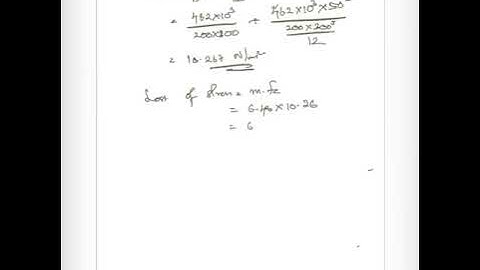 = 462×10³/200×300 + 462×10³×50²/(200×300³/12)
= 10.267 N/mm²
Loss of stress = m.fc
= × 10.26
= 6